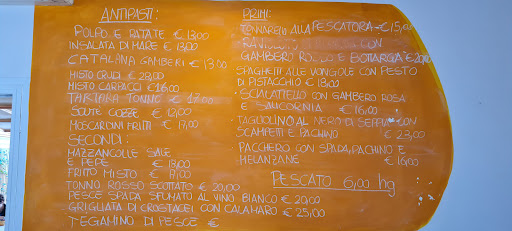 ANTIPASTI:
POLPO E PATATE € 13,00
INSALATA DI MARE € 13,00
CATALANA GAMBERI € 13,00
MISTO CRUDI € 28,00
MISTO CARPACCI € 16,00
TARTARA TONNO €
SOUTE COZZE € 12,00
MOSCARDINI FRITTI €
SECONDI:
MAZZANCOLLE SALE
E PEPE €
FRITTO MISTO €
TONNO ROSSO SCOTTATO € 20,00
PESCE SPADA SFUMATO AL VINO BIANCO € 20,00
GRIGLIATA DI CROSTACEI CON CALAMARO € 25,00
TEGAMINO DI PESCE €
PRIMI:
ALLA PESCATORA € 15,00
CON
GAMBERO ROSSO E BOTTARGA € 20,00
SPAGHETTI ALLE VONGOLE CON PESTO
DI PISTACCHIO € 18,00
SCIALATIELLO CON GAMBERO ROSA
E SALICORNIA € 16,00
TAGLIOLINO AL NERO DI SEPPIA CON
SCAMPETTI E PACHINO € 23,00
PACCHERO CON SPADA, PACHINO E
MELANZANE € 16,00
PESCATO 6,00 hg